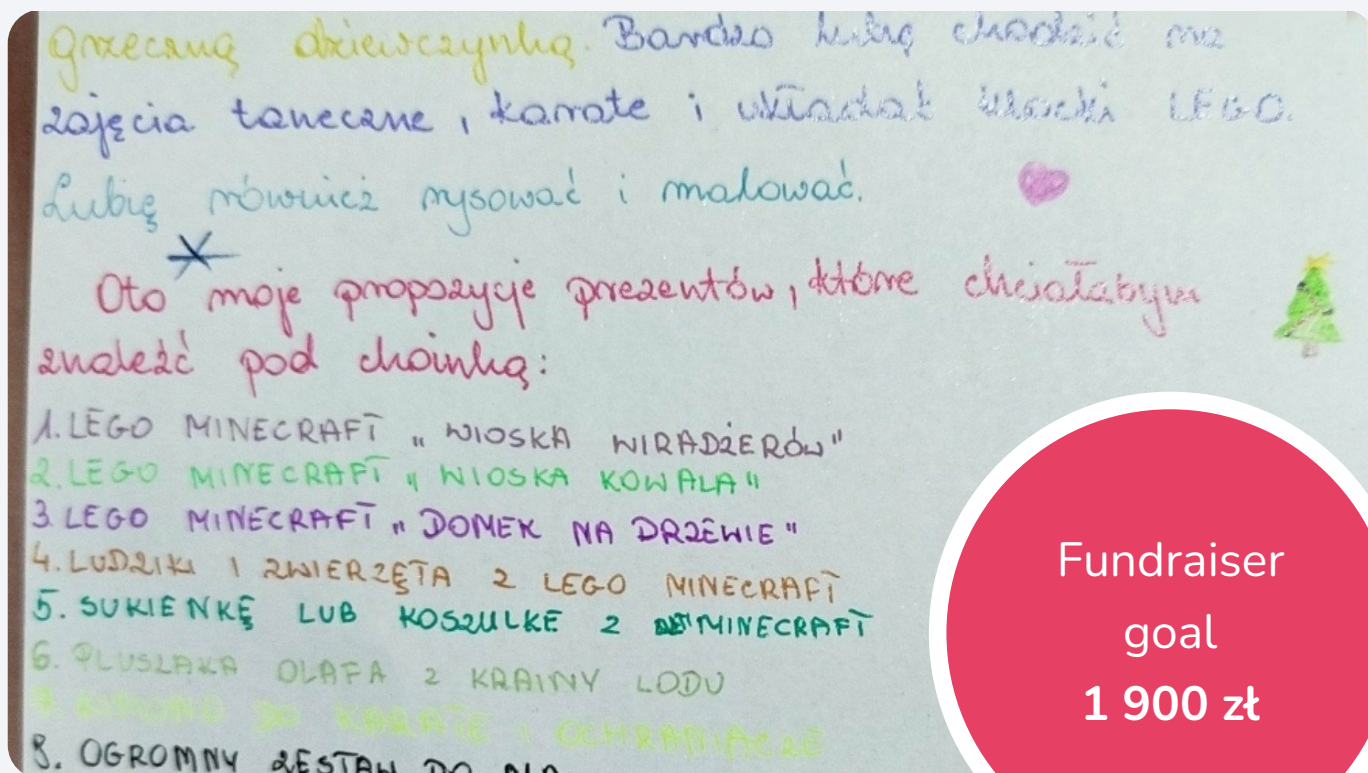 grzeczną dziewczynką. Bardzo lubię chodzić na
zajęcia taneczne, karate i układać klocki LEGO.
Lubię również rysować i malować.
Oto moje propozycje prezentów, które chciałabym
znaleźć pod choinką:
1. LEGO MINECRAFT „WIOSKA WIRADŻERÓW"
2. LEGO MINECRAFT „WIOSKA KOWALA"
3. LEGO MINECRAFT „DOMEK NA DRZEWIE"
4. LUDZIKI I ZWIERZĘTA Z LEGO MINECRAFT
5. SUKIENKĘ LUB KOSZULKE Z MINECRAFT
6. PLUSZAKA OLAFA Z KRAINY LODU
7. KIMONO DO KARATE I OCHRANIACZE
8. OGROMNY ZESTAW DO
Fundraiser
goal
1 900 zł